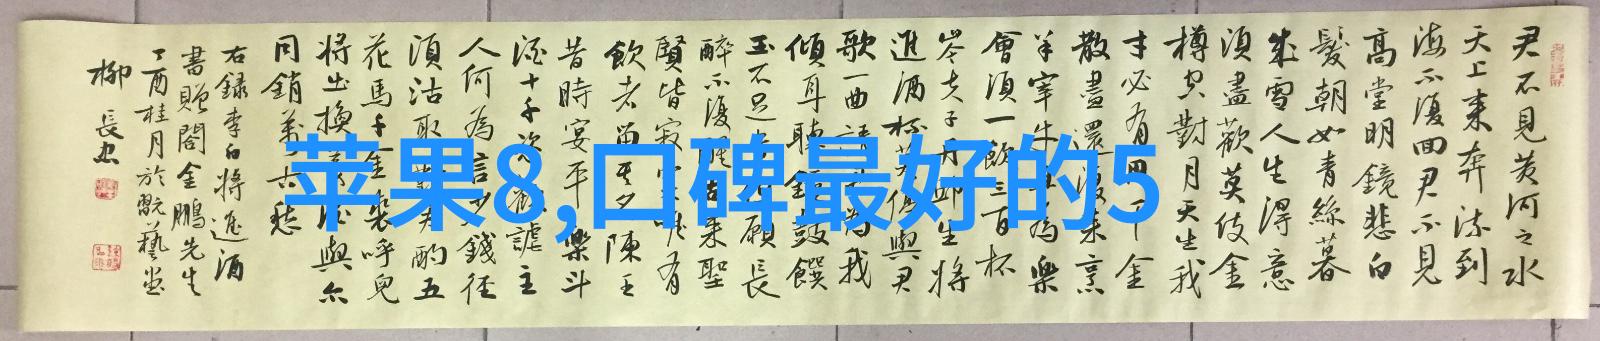 苹果8,口碑最好的5
君不見黃河之水
天上來奔流到
海不復回君不見
高堂明鏡悲白
髮朝如青絲暮
成雪人生得意
須盡歡莫使金
樽空對月天生我
才必有用千金
散盡還復來烹
羊宰牛且為樂
會須一飲三百杯
岑夫子丹邱生將
進酒杯莫停與君
歌一曲請君為我
傾耳聽鐘鼓饌
玉不足貴願長
醉不復醒古來聖
賢皆寂寞唯有
飲者留其名陳王
昔時宴平樂斗
酒十千恣歡謔主
人何為言少錢徑
須沽取對君酌五
花馬千金裘呼兒
將出換美酒與尔
同銷萬古愁
右錄李白將進酒
書贈閤金鵬先生
丁酉桂月於翫藝堂
柳長忠